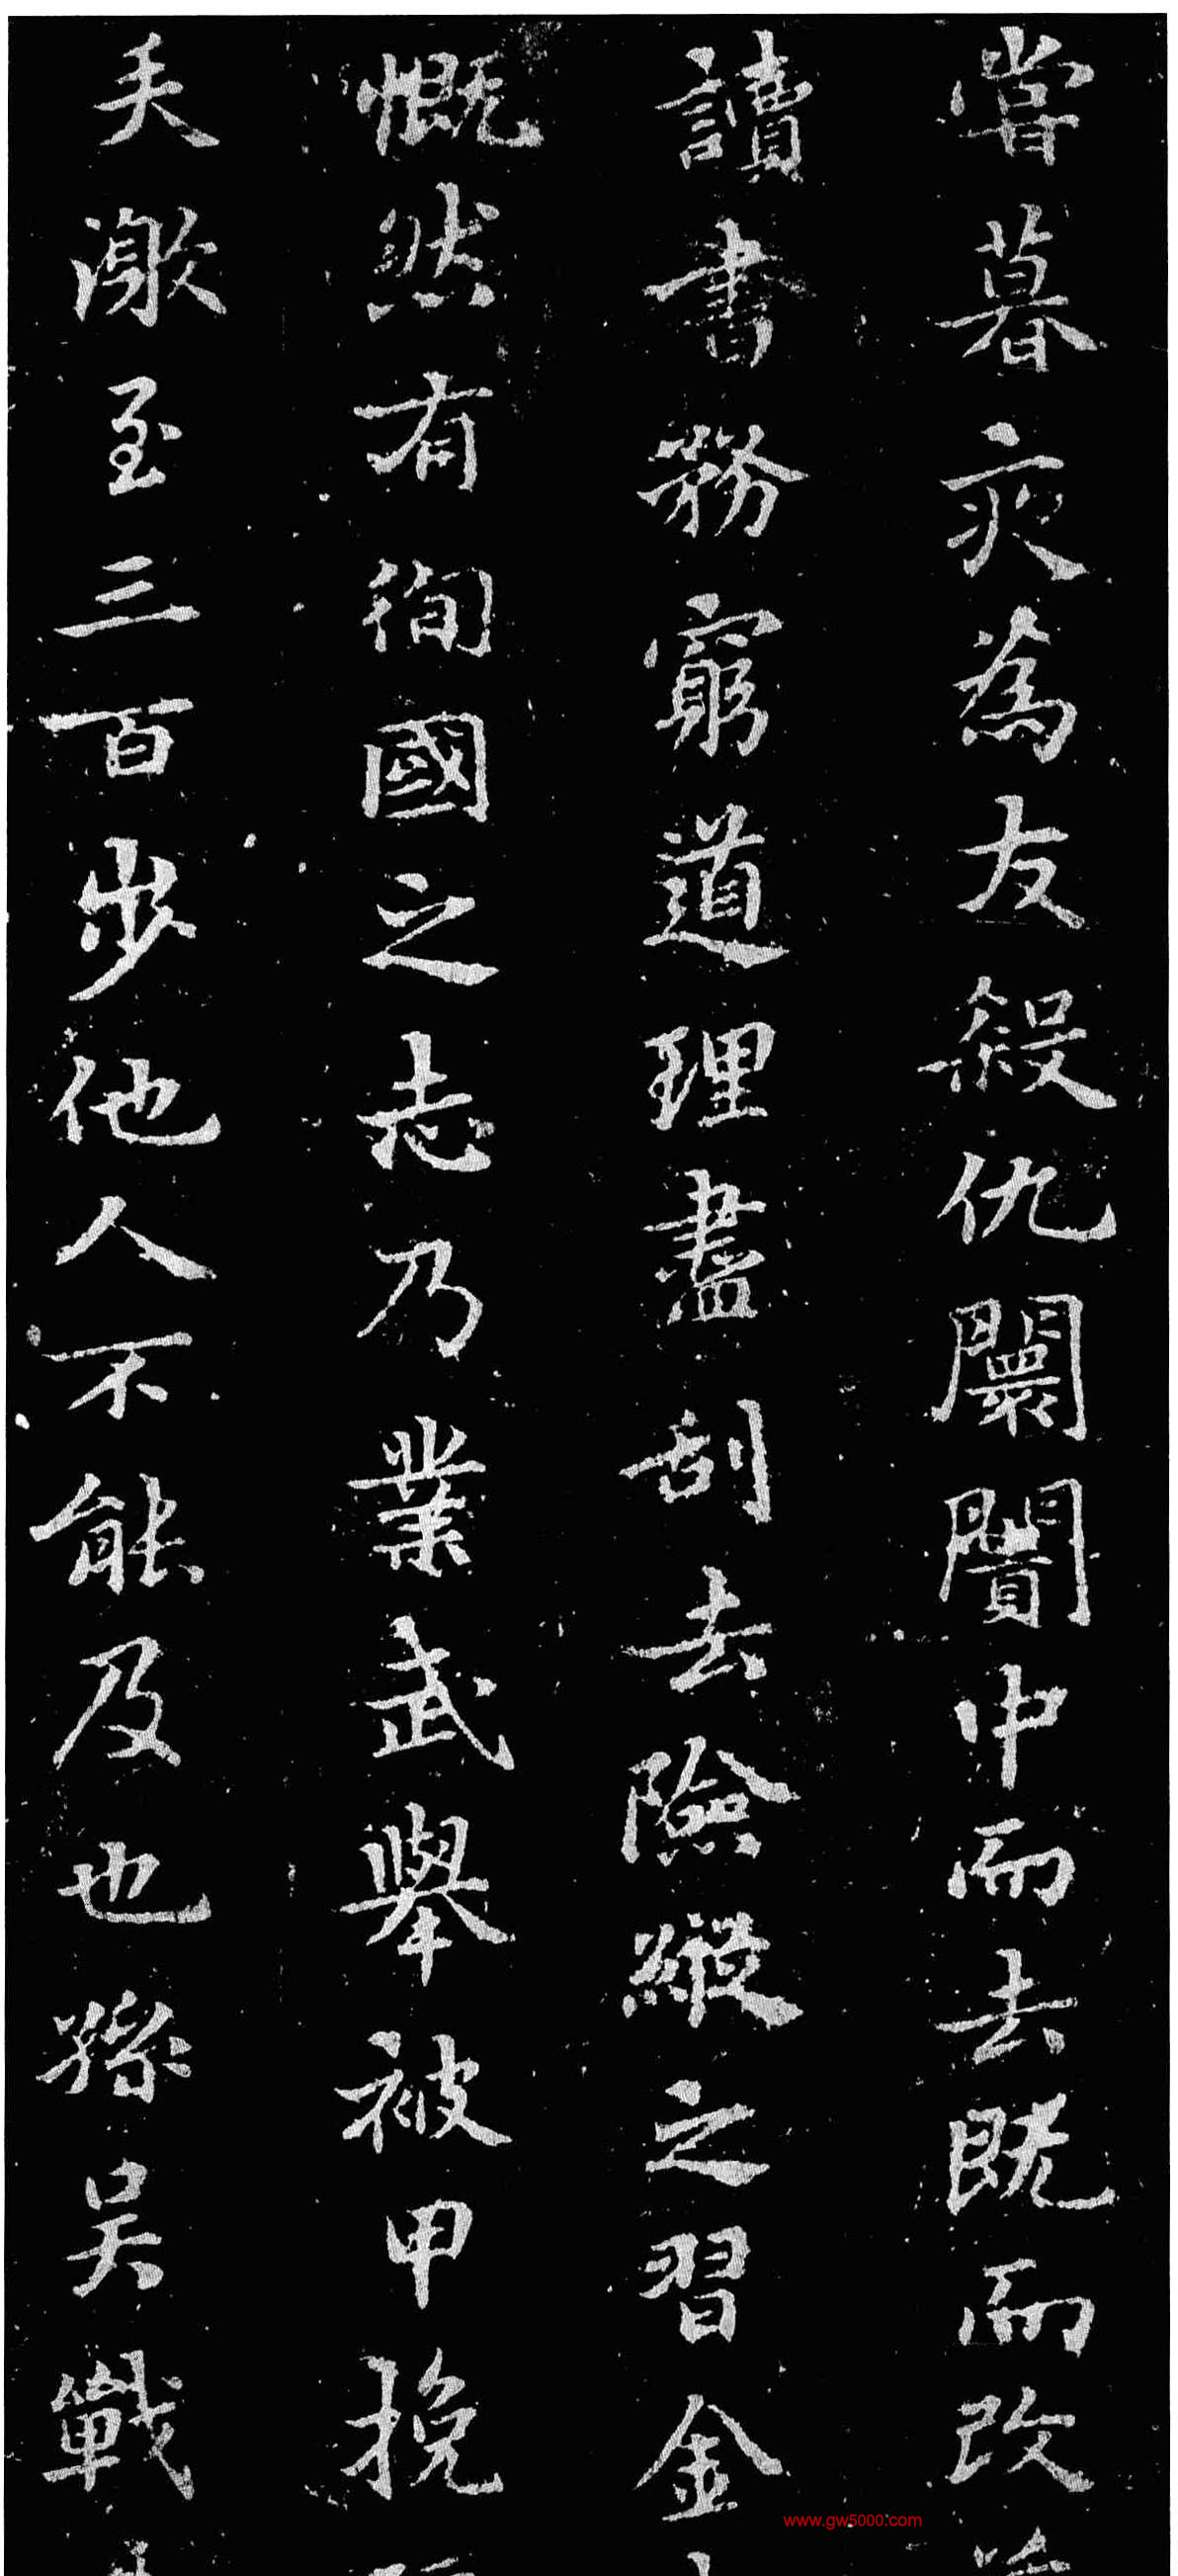 嘗暮夜為友殺仇闤闠中而去既而改
讀書務窮道理盡刮去險縱之習金
慨然有徇國之志乃業武舉被甲挽
矢激至三百步他人不能及也孫吳戰
www.gw5000.com